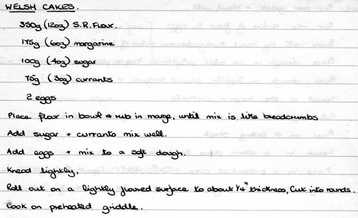 WELSH CAKES.
350g (12oz) S.R. Flour.
175g (6oz) margarine
100g (4oz) sugar
75g (3oz) currants
2 eggs
Place flour in bowl + rub in marge, until mix is like breadcrumbs
Add sugar + currants mix well.
Add eggs + mix to a soft dough.
Knead lightly,
Roll out on a lightly floured surface to about 1/4" thickness, Cut into rounds.
Cook on preheated griddle.